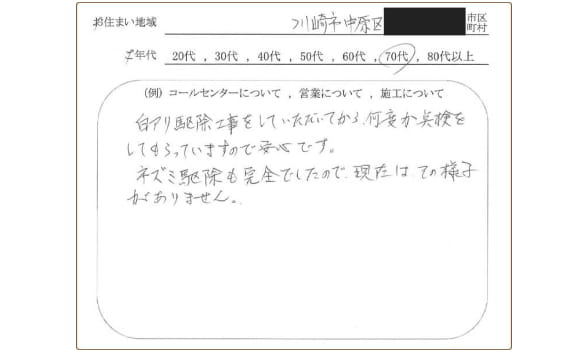 お住まい地域 川崎市中原区 市区町村
年代 20代 , 30代 , 40代 , 50代 , 60代 , 70代 , 80代以上
(例) コールセンターについて , 営業について , 施工について
白アリ駆除工事をしていただいてから、何度か点検を
してもらっていますので安心です。
ネズミ駆除も完全でしたので、現在は、その様子
がありません。